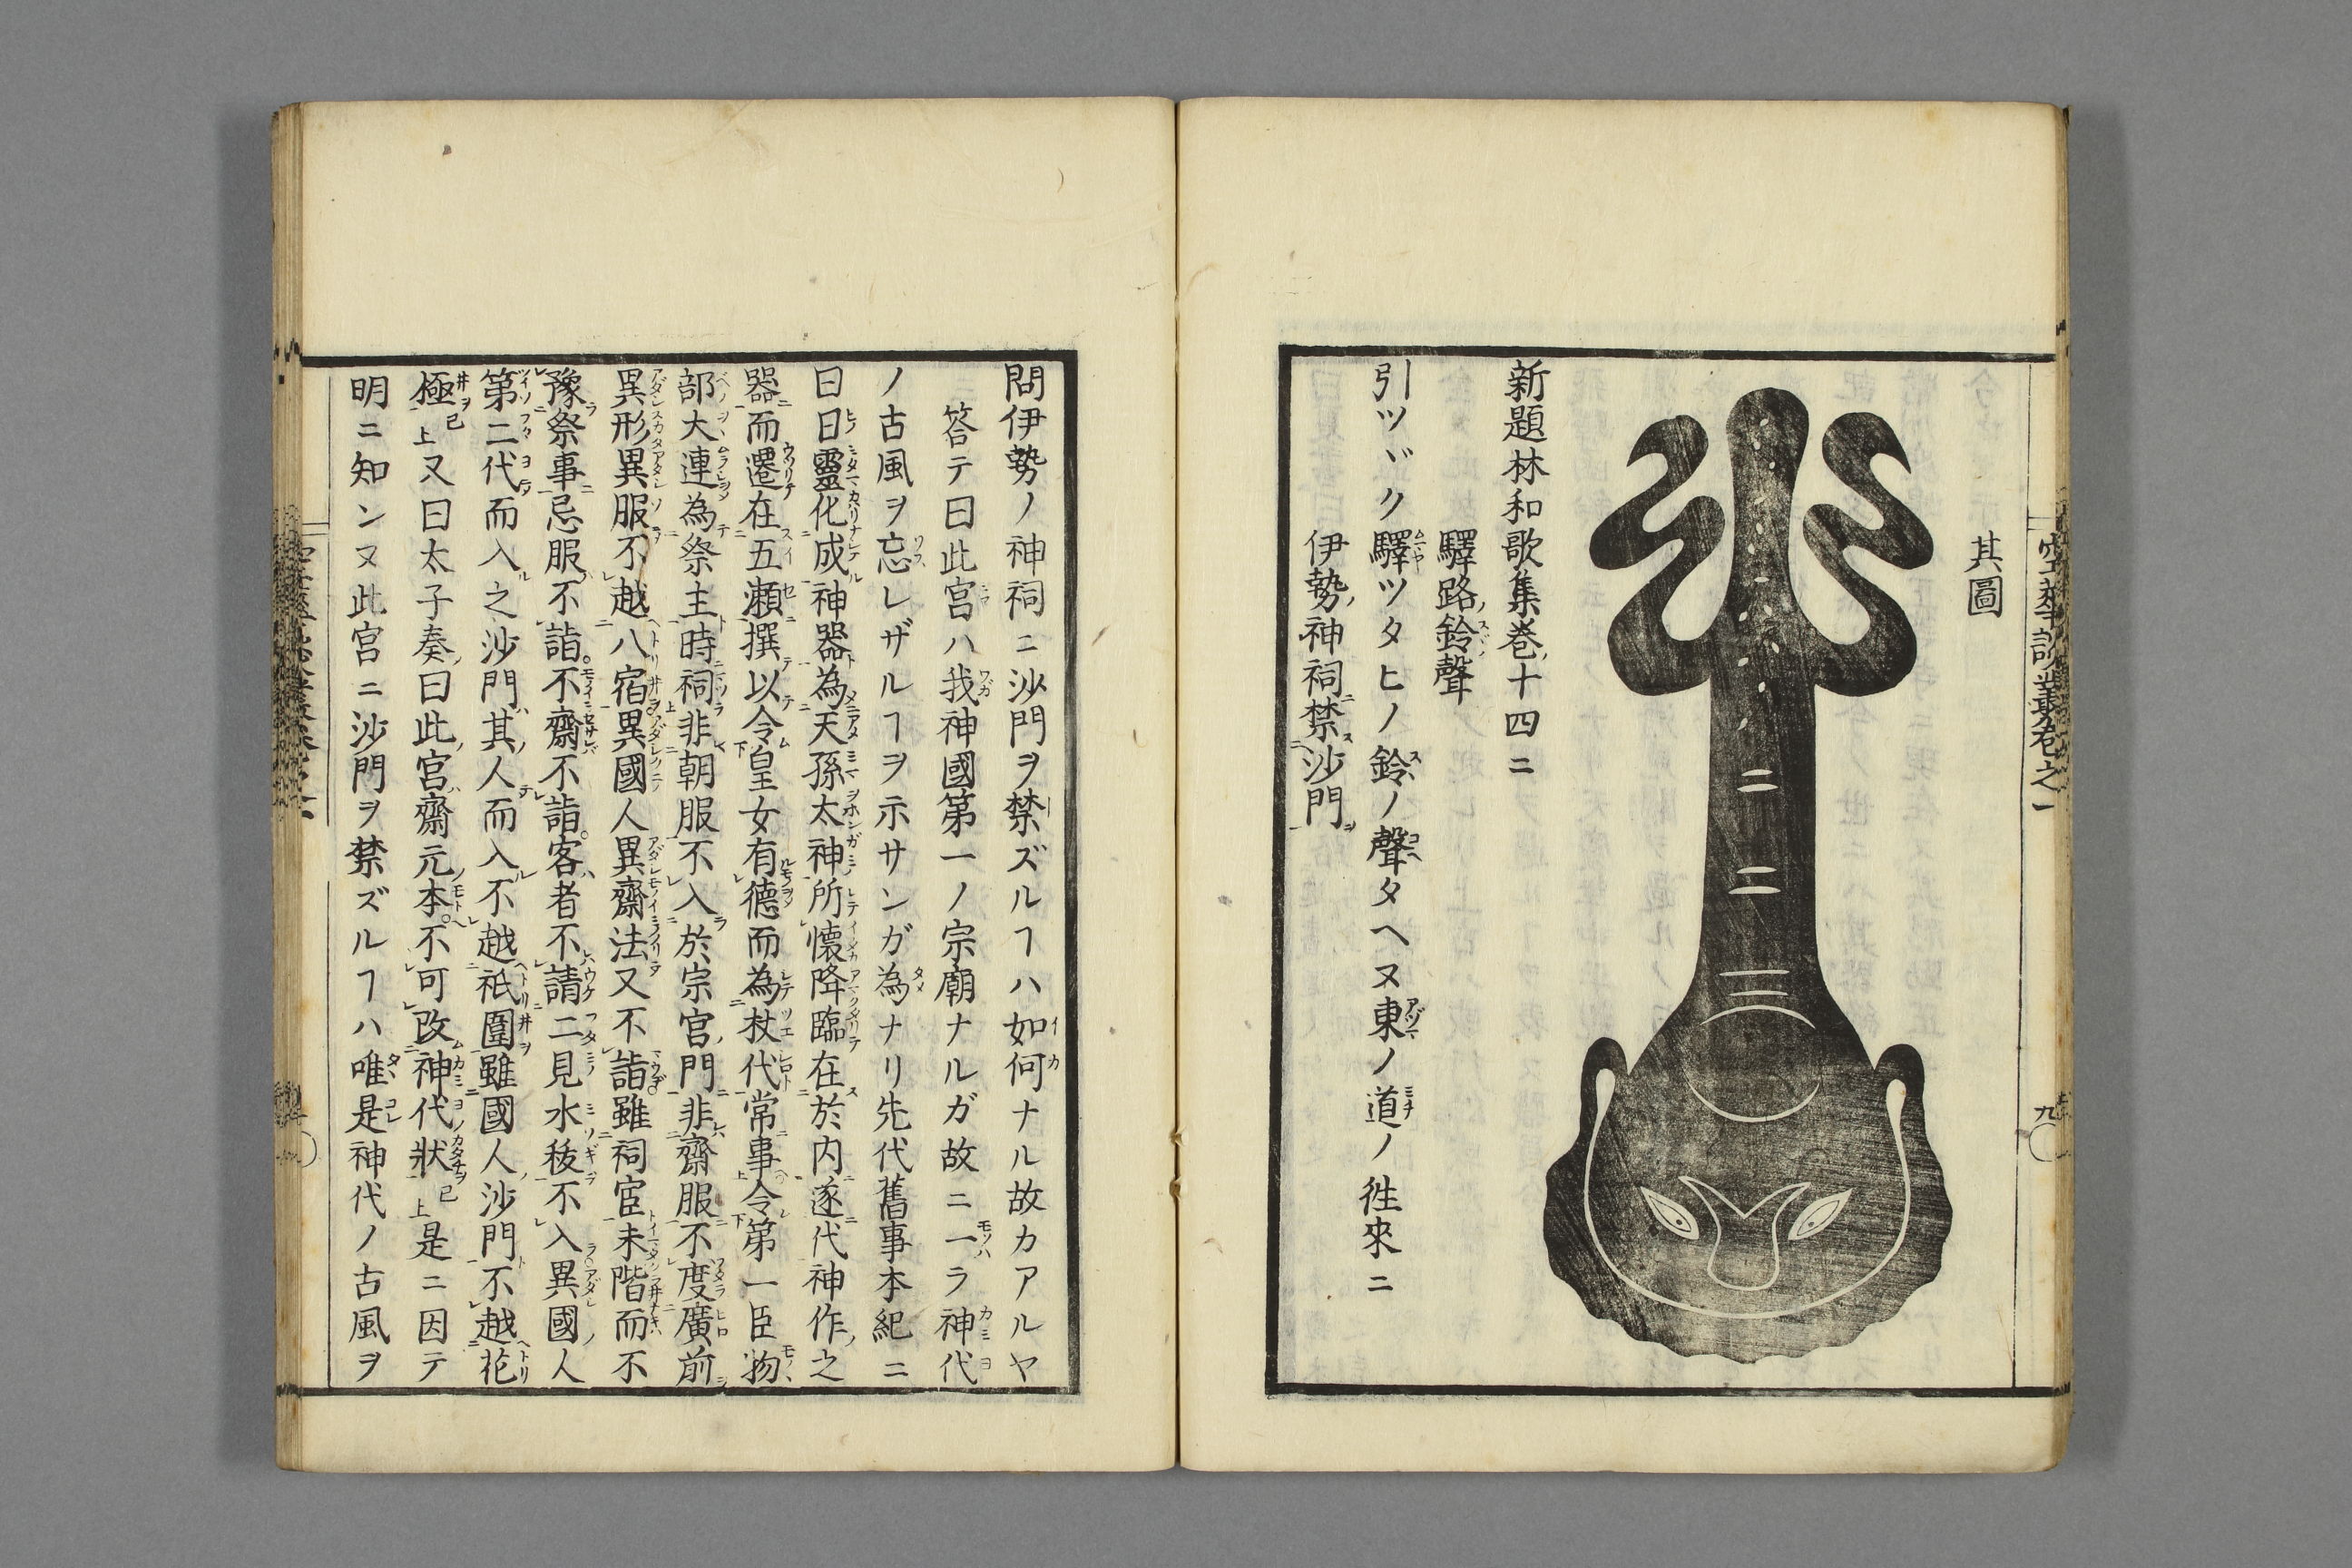 空華談叢卷之一
九
其圖
新題林和歌集卷十四ニ
驛路ノ鈴聲
引ツヾク驛ツタヒノ鈴ノ聲タヘヌ東ノ道ノ徃來ニ
伊勢ノ神祠ニ禁ス沙門ヲ
問伊勢ノ神祠ニ沙門ヲ禁ズルヿハ如何ナル故カアルヤ
答テ曰此宮ハ我神國第一ノ宗廟ナルガ故ニ一ラ神代
ノ古風ヲ忘レザルヿヲ示サンガ為ナリ先代舊事本紀ニ
曰日靈化成神器為天孫太神所懷降臨在於内遂代神作之
器而遷在五瀬撰以令皇女有德而為杖代常事令第一臣物
部大連為祭主時祠非朝服不入於宗宮門非齋服不度廣前
異形異服不越八宿異國人異齋法又不詣雖祠宦未階而不
豫祭事忌服不詣。不齋不詣。客者不請二見水秡不入異國人
第二代而入之沙門其人而入不越祇圍雖國人沙門不越花
極已上又曰太子奏曰此宮齋元本。不可改神代狀已上是ニ因テ
明ニ知ンヌ此宮ニ沙門ヲ禁ズルヿハ唯是神代ノ古風ヲ